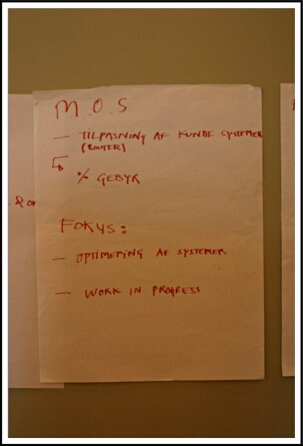 M.O.S
— TILPASNING AF KUNDE SYSTEMER
(ROUTER)
% GEBYR
FOKUS:
— OPTIMERING AF SYSTEMER
— WORK IN PROGRESS